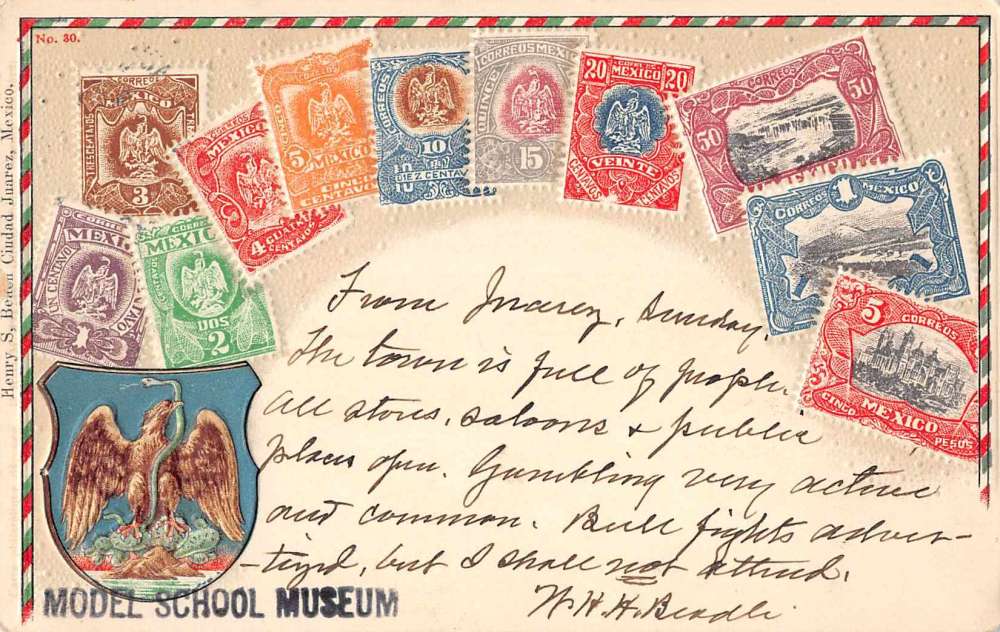 No. 30.
Henry S. Beach Ciudad Juarez, Mexico.
CORREOS
MEXICO
TRES CENTAVOS
3
CORREOS
MEXICO
4
CUATRO
CENTAVOS
CORREOS
5
MEXICO
CINCO
CENTAVOS
CORREOS
10
DIEZ CENTAVOS
CORREOS MEXICO
QUINCE
15
20
MEXICO
20
VEINTE
CENTAVOS
CENTAVOS
CORREOS
50
50
1
CORREOS
MEXICO
5
CORREOS
5
CINCO
MEXICO
PESOS
UN CENTAVO
MEXI
1
CORREOS
MEXIC
CENTAVOS
DOS
2
From Juarez, Sunday,
The town is full of people.
All stores, saloons & public
places open. Gambling very active
and common. Bull fights adver-
tized, but I shall not attend.
W.H.H. Beadle
MODEL SCHOOL MUSEUM